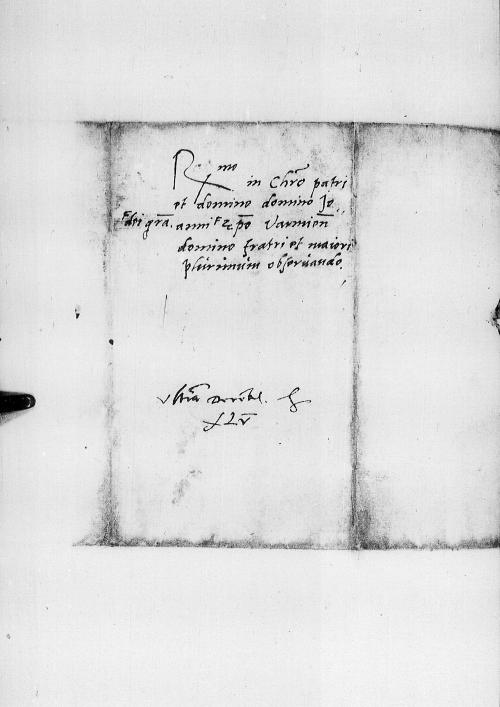 Rmo in Chro patri
et domino domino Io
dei gra. anni &c. po Varmien
domino fratri et maiori
plurimum observando.
ultia Decebl.
XLV